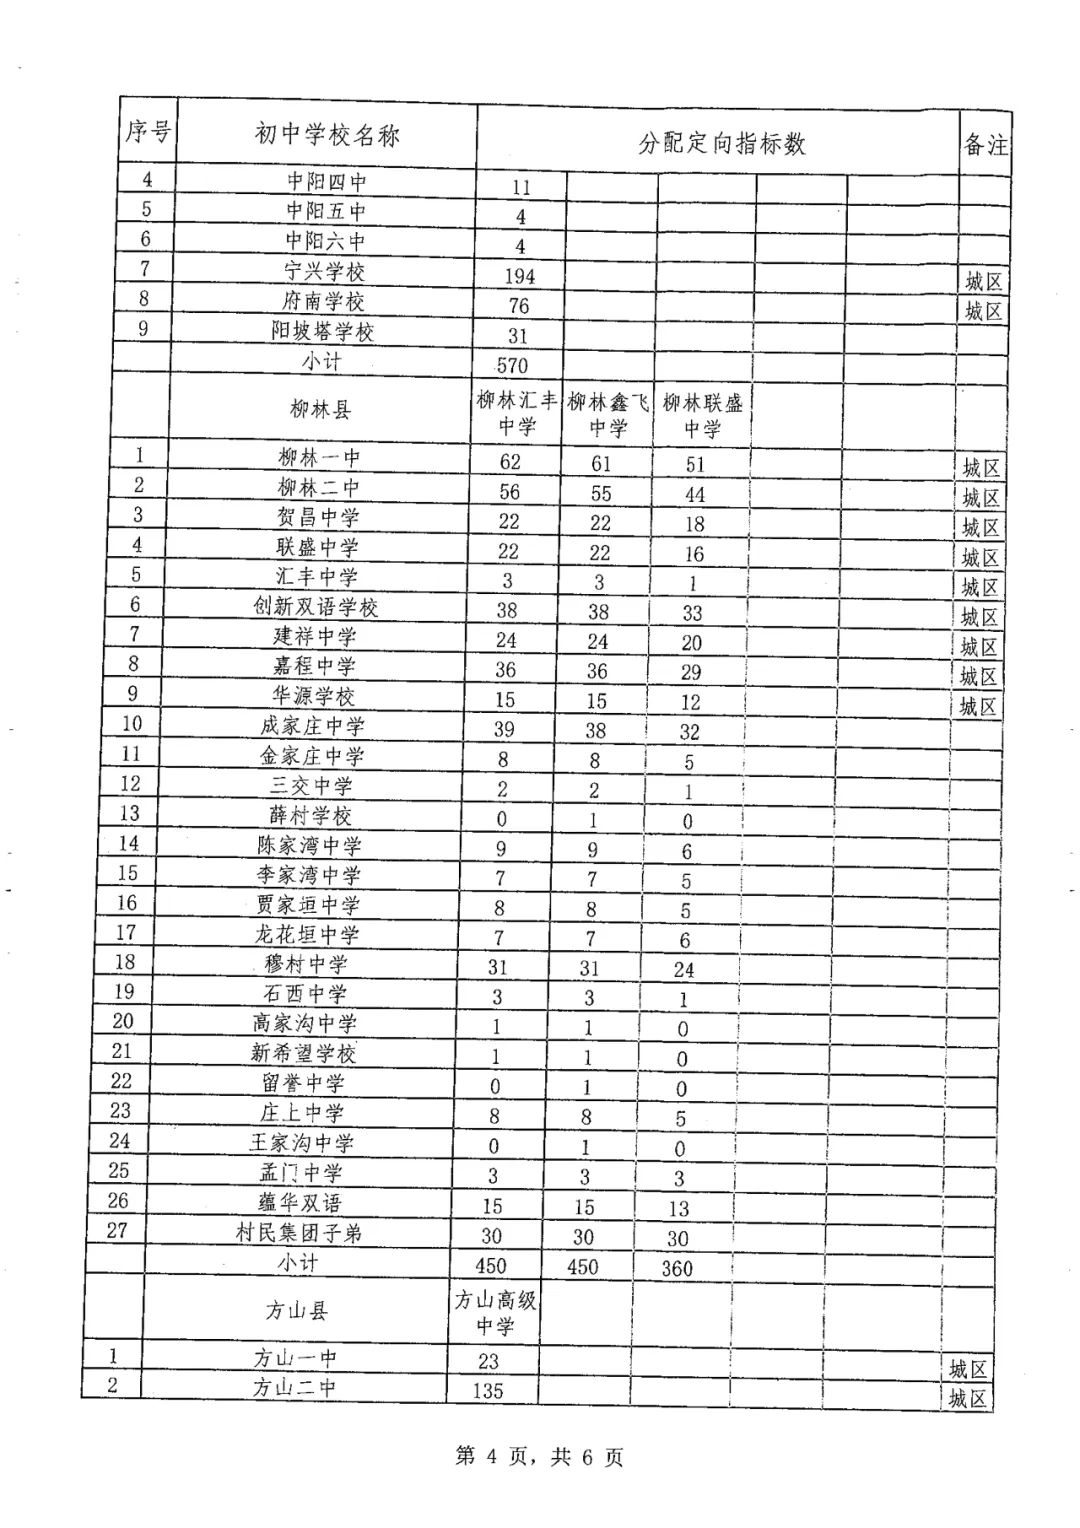 序号 初中学校名称 分配定向指标数 备注
4 中阳四中 11
5 中阳五中 4
6 中阳六中 4
7 宁兴学校 194 城区
8 府南学校 76 城区
9 阳坡塔学校 31
小计 570
柳林县 柳林汇丰中学 柳林鑫飞中学 柳林联盛中学
1 柳林一中 62 61 51 城区
2 柳林二中 56 55 44 城区
3 贺昌中学 22 22 18 城区
4 联盛中学 22 22 16 城区
5 汇丰中学 3 3 1 城区
6 创新双语学校 38 38 33 城区
7 建祥中学 24 24 20 城区
8 嘉程中学 36 36 29 城区
9 华源学校 15 15 12 城区
10 成家庄中学 39 38 32
11 金家庄中学 8 8 5
12 三交中学 2 2 1
13 薛村学校 0 1 0
14 陈家湾中学 9 9 6
15 李家湾中学 7 7 5
16 贾家垣中学 8 8 5
17 龙花垣中学 7 7 6
18 穆村中学 31 31 24
19 石西中学 3 3 1
20 高家沟中学 1 1 0
21 新希望学校 1 1 0
22 留誉中学 0 1 0
23 庄上中学 8 8 5
24 王家沟中学 0 1 0
25 孟门中学 3 3 3
26 蕴华双语 15 15 13
27 村民集团子弟 30 30 30
小计 450 450 360
方山县 方山高级中学
1 方山一中 23 城区
2 方山二中 135 城区
第 4 页，共 6 页